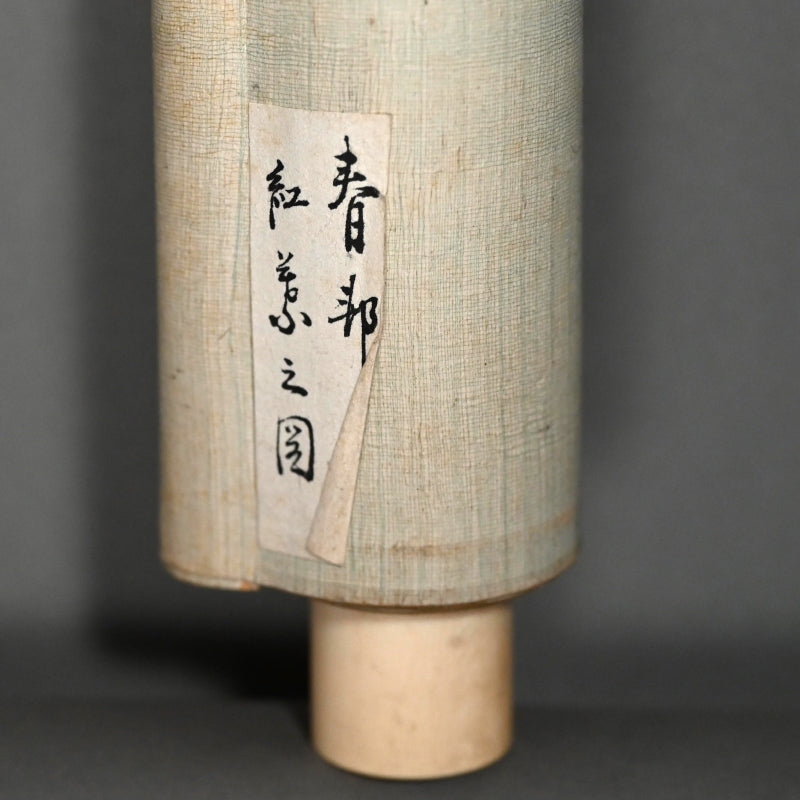 春邦
紅葉之図